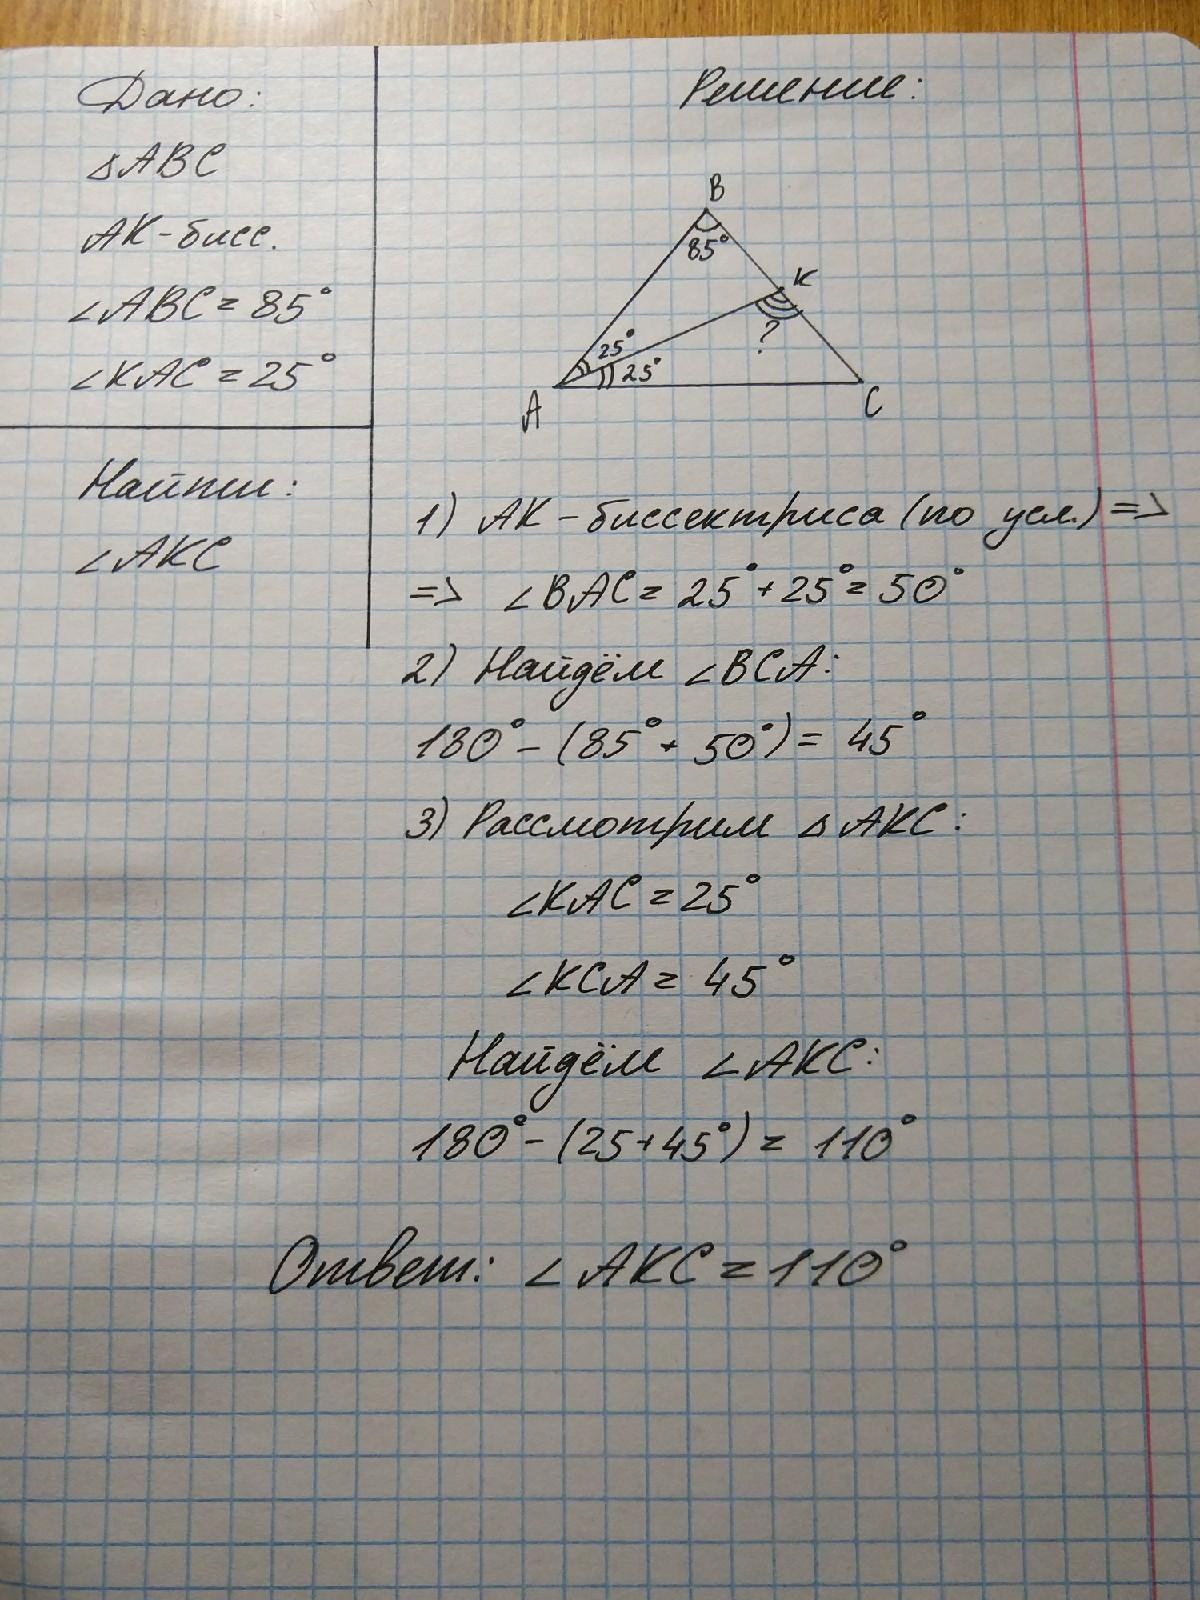 Дано:
△ABC
AK-бисс.
∠ABC=85°
∠KAC=25°
Найти:
∠AKC
Решение:
B
85°
K
?
25°
25°
A
C
1) AK-биссектриса (по усл.) =>
=> ∠BAC=25°+25°=50°
2) Найдём ∠BCA:
180°-(85°+50°)=45°
3) Рассмотрим △AKC:
∠KAC=25°
∠KCA=45°
Найдём ∠AKC:
180°-(25+45°)=110°
Ответ: ∠AKC=110°